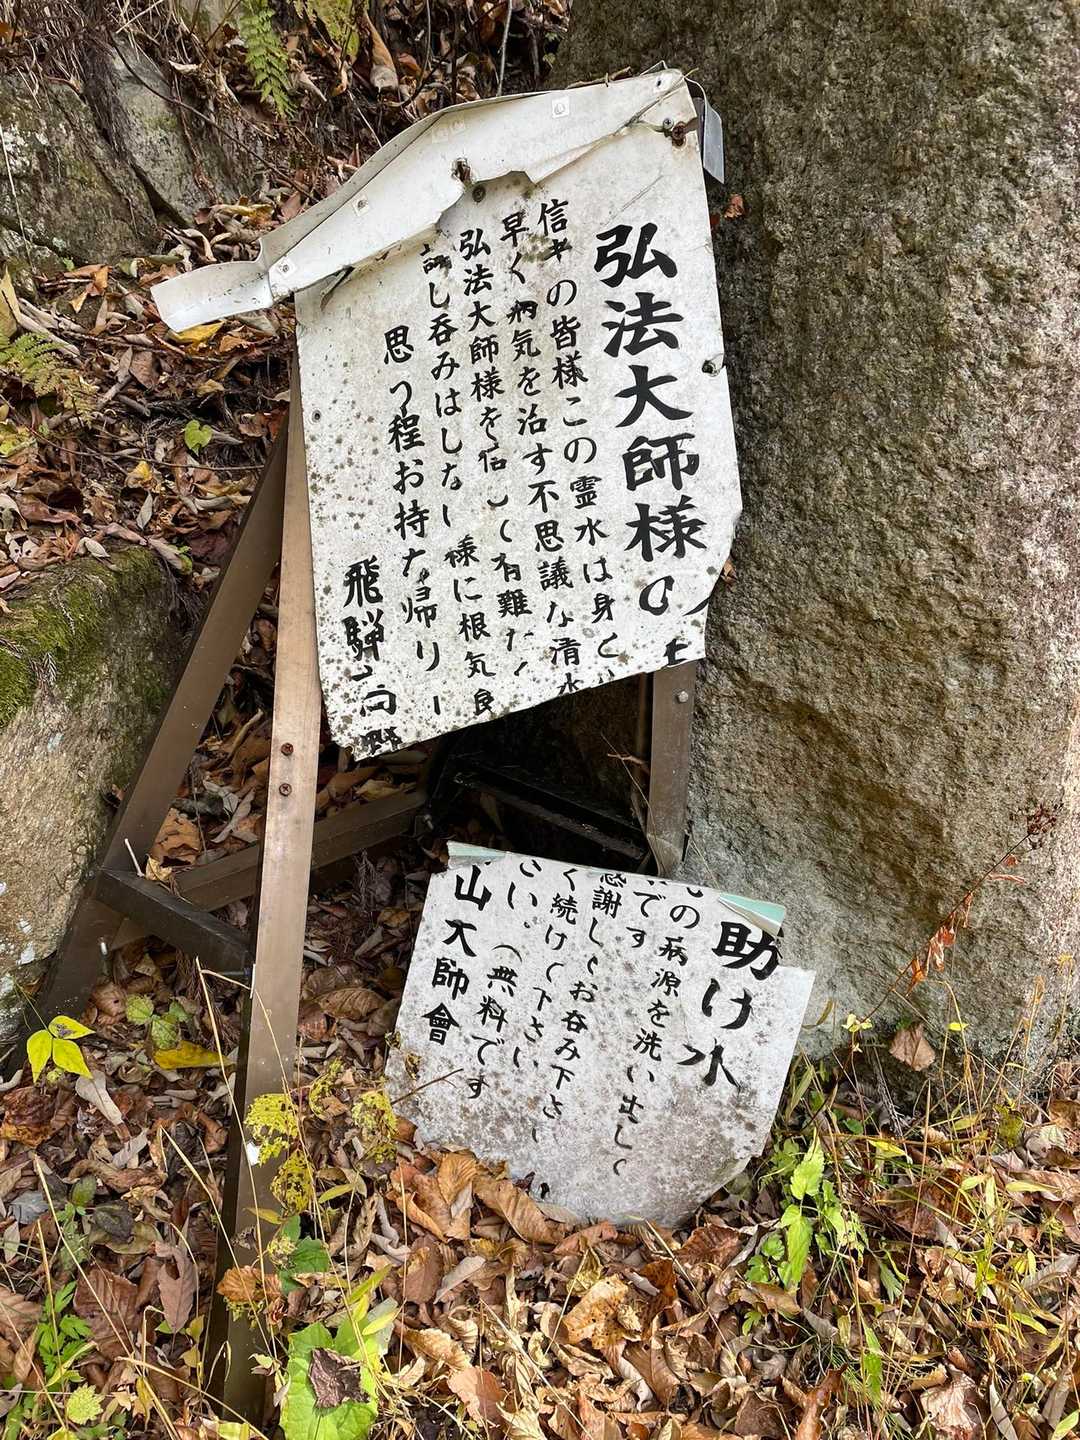 弘法大師様の
信者の皆様この霊水は身と
早く病気を治す不思議な清水
弘法大師様を信じて有難た
試し呑みはしない様に根気良
思う程お持ち帰り
飛騨高野
助け水
の病源を洗い出して
です
感謝してお呑み下さい
く続けて下さい
さい。(無料です
山大師會